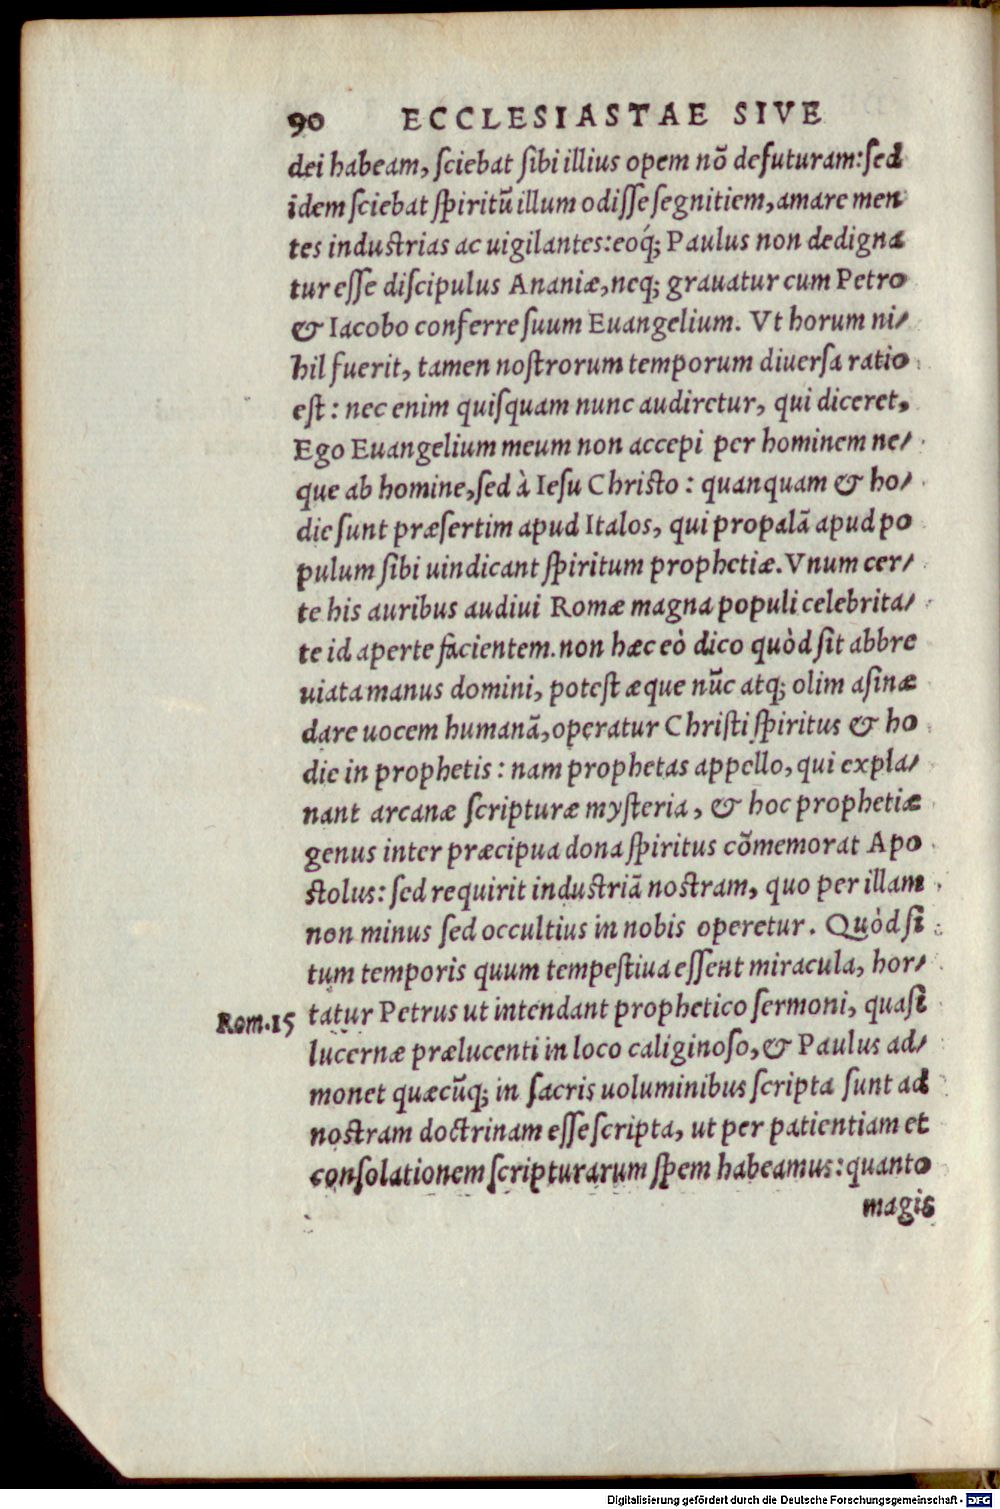 90 ECCLESIASTAE SIVE
dei habeam, ſciebat ſibi illius opem nõ defuturam: ſed
idem ſciebat ſpiritũ illum odiſſe ſegnitiem, amare men
tes induſtrias ac uigilantes: eoq́; Paulus non dedigna
tur eſſe diſcipulus Ananiæ, neq; grauatur cum Petro
& Iacobo conferre ſuum Euangelium. Vt horum ni/
hil fuerit, tamen noſtrorum temporum diuerſa ratio
eſt: nec enim quiſquam nunc audiretur, qui diceret,
Ego Euangelium meum non accepi per hominem ne/
que ab homine, ſed à Ieſu Chriſto: quanquam & ho/
die ſunt præſertim apud Italos, qui propalã apud po
pulum ſibi uindicant ſpiritum prophetiæ. Vnum cer/
te his auribus audiui Romæ magna populi celebrita/
te id aperte facientem. non hæc eò dico quòd ſit abbre
uiata manus domini, poteſt æque nũc atq; olim aſinæ
dare uocem humanã, operatur Chriſti ſpiritus & ho
die in prophetis: nam prophetas appello, qui expla/
nant arcanæ ſcripturæ myſteria, & hoc prophetiæ
genus inter præcipua dona ſpiritus cõmemorat Apo
ſtolus: ſed requirit induſtriã noſtram, quo per illam
non minus ſed occultius in nobis operetur. Quòd ſi
tum temporis quum tempeſtiua eſſent miracula, hor/
Rom.15 tatur Petrus ut intendant prophetico ſermoni, quaſi
lucernæ prælucenti in loco caliginoſo, & Paulus ad/
monet quæcũq; in ſacris uoluminibus ſcripta ſunt ad
noſtram doctrinam eſſe ſcripta, ut per patientiam et
conſolationem ſcripturarum ſpem habeamus: quanto
magis
Digitalisierung gefördert durch die Deutsche Forschungsgemeinschaft - DFG